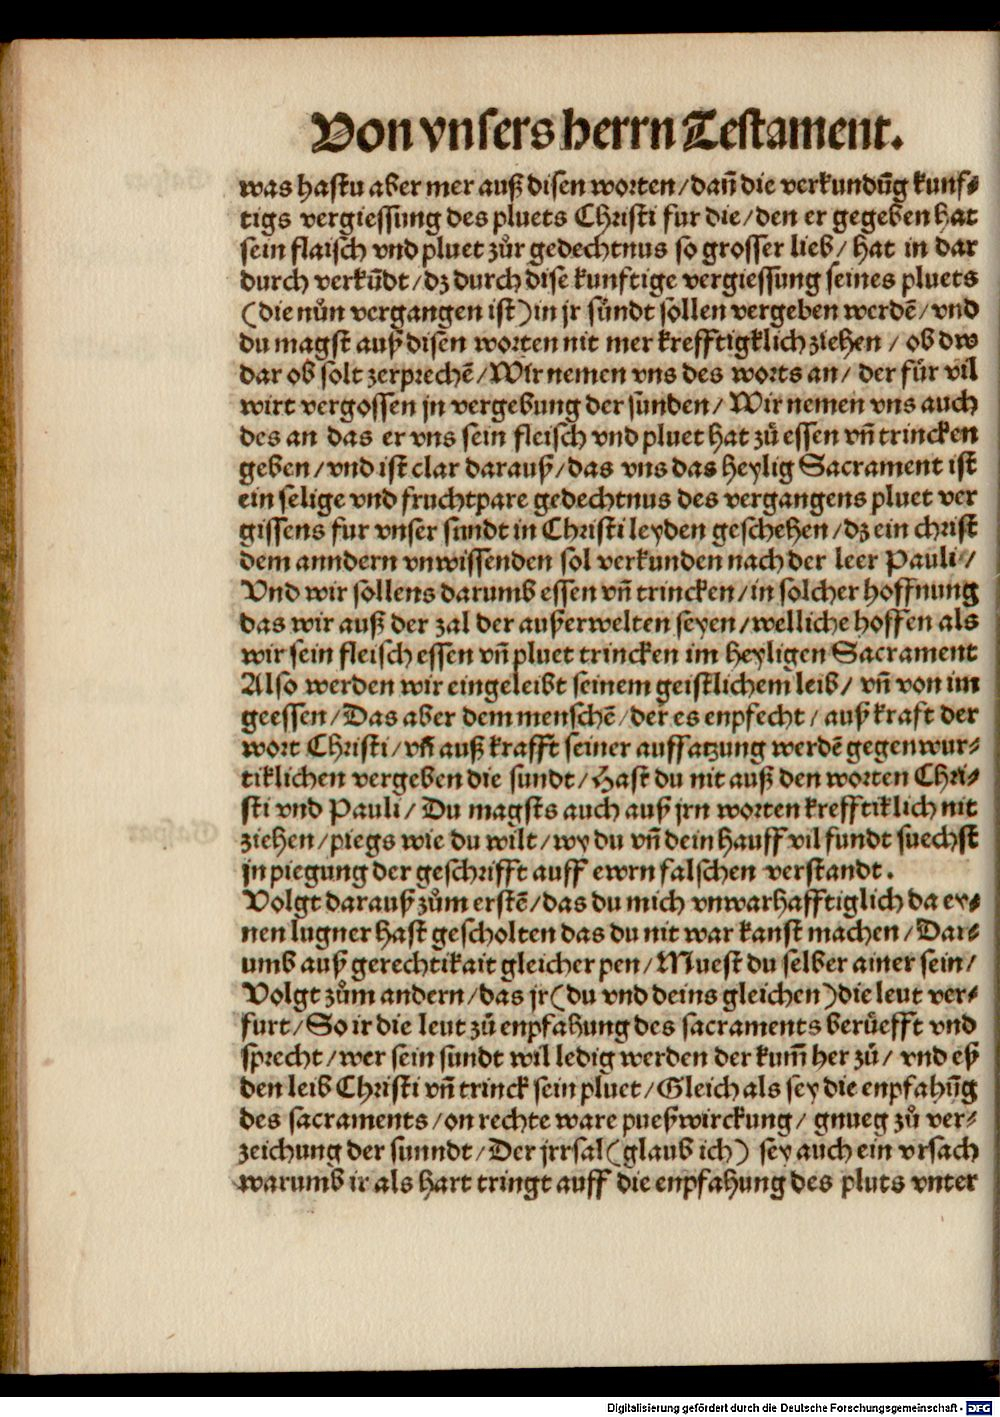 Von vnsers herrn Testament.
was hastu aber mer auß disen worten/ dañ die verkundūg kunf⸗
tigs vergiessung des pluets Christi fur die/ den er gegeben hat
sein flaisch vnd pluet zůr gedechtnus so grosser lieb/ hat in dar
durch verkūdt/ dz durch dise kunftige vergiessung seines pluets
(die nůn vergangen ist) in jr sündt sollen vergeben werdē/ vnd
du magst auß disen worten nit mer krefftigklich ziehen/ ob dw
dar ob solt zerprechē/ Wir nemen vns des worts an/ der für vil
wirt vergossen jn vergebung der sunden/ Wir nemen vns auch
des an das er vns sein fleisch vnd pluet hat zů essen vñ trincken
geben/ vnd ist clar darauß/ das vns das heylig Sacrament ist
ein selige vnd fruchtpare gedechtnus des vergangens pluet ver
gissens fur vnser sundt in Christi leyden geschehen/ dz ein christ
dem anndern vnwissenden sol verkunden nach der leer Pauli/
Vnd wir sollens darumb essen vñ trincken/ in solcher hoffnung
das wir auß der zal der außerwelten seyen/ welliche hoffen als
wir sein fleisch essen vñ pluet trincken im heyligen Sacrament
Also werden wir eingeleibt seinem geistlichem leib/ vñ von im
geessen/ Das aber dem menschē/ der es enpfecht/ auß kraft der
wort Christi/ vñ auß krafft seiner auffatzung werdē gegenwur⸗
tiklichen vergeben die sundt/ Hast du nit auß den worten Chri⸗
sti vnd Pauli/ Du magsts auch auß jrn worten krefftiklich nit
ziehen/ piegs wie du wilt/ wy du vñ dein hauff vil fundt suechst
jn piegung der geschrifft auff ewrn falschen verstandt.
Volgt darauß zům erstē/ das du mich vnwarhafftiglich da ey⸗
nen lugner hast gescholten das du nit war kanst machen/ Dar⸗
umb auß gerechtikait gleicher pen/ Muest du selber ainer sein/
Volgt zům andern/ das jr (du vnd deins gleichen) die leut ver⸗
furt/ So ir die leut zů enpfahung des sacraments berüefft vnd
sprecht/ wer sein sundt wil ledig werden der kum̃ her zů/ vnd eß
den leib Christi vñ trinck sein pluet/ Gleich als sey die enpfahūg
des sacraments/ on rechte ware pueßwirckung/ gnueg zů ver⸗
zeichung der sunndt/ Der jrrsal (glaub ich) sey auch ein vrsach
warumb ir als hart tringt auff die enpfahung des pluts vnter
Digitalisierung gefördert durch die Deutsche Forschungsgemeinschaft - DFG